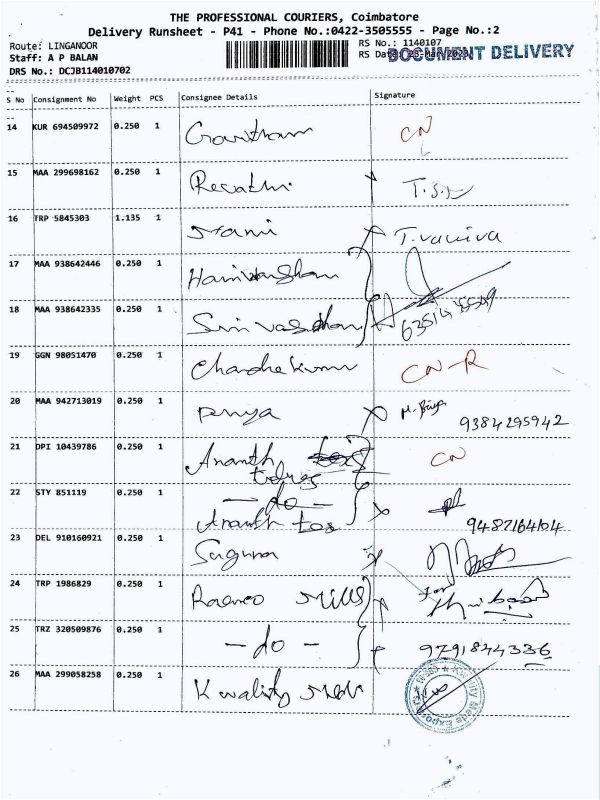 THE PROFESSIONAL COURIERS, Coimbatore
Delivery Runsheet - P41 - Phone No.:0422-3505555 - Page No.:2
Route: LINGANOOR
Staff: A P BALAN
DRS No.: DCJB114010702
RS No.: 1140107
RS Date: 23-Mar-2023
DOCUMENT DELIVERY
S No Consignment No Weight PCS Consignee Details Signature
14 KUR 694509972 0.250 1 Gowtham CN
15 MAA 299698162 0.250 1 Revathi
16 TRP 5845303 1.135 1 Mani
17 MAA 938642446 0.250 1
18 MAA 938642335 0.250 1
19 GGN 98051470 0.250 1 CN-R
20 MAA 942713019 0.250 1 9384295942
21 DPI 10439786 0.250 1 Ananth CN
22 STY 851119 0.250 1 - do -
Ananth tex 9487164104
23 DEL 910160921 0.250 1 Suguna
24 TRP 1986829 0.250 1 Mills for
25 TRZ 320509876 0.250 1 - do - 9791844336
26 MAA 299058258 0.250 1 Kwality